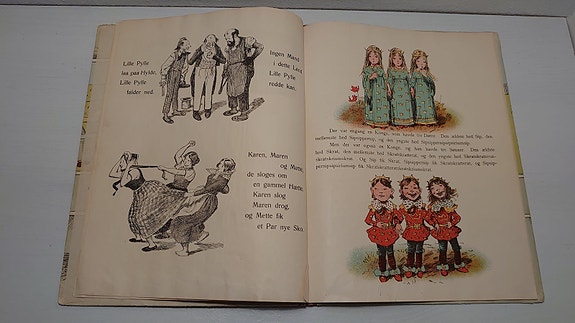 Lille Pylle
laa paa Hylde,
Lille Pylle
falder ned.
Ingen Mand
i dette Land
Lille Pylle
redde kan.
Karen, Maren
og Mette
de sloges om
en gammel Hætte;
Karen slog
Maren drog,
og Mette fik
et Par nye Sko.
Der var engang en Konge, som havde tre Døtre: Den ældste hed Sip, den
mellemste hed Sipsippernip, og den yngste hed
Men der var ogsaa en Konge, der han havde tre Sønner: Den ældste
hed Skrat, den mellemste hed Skratskratterat, og den yngste hed
Og Sip fik Skrat, Sipsippernip fik Skratskratterat, og
fik